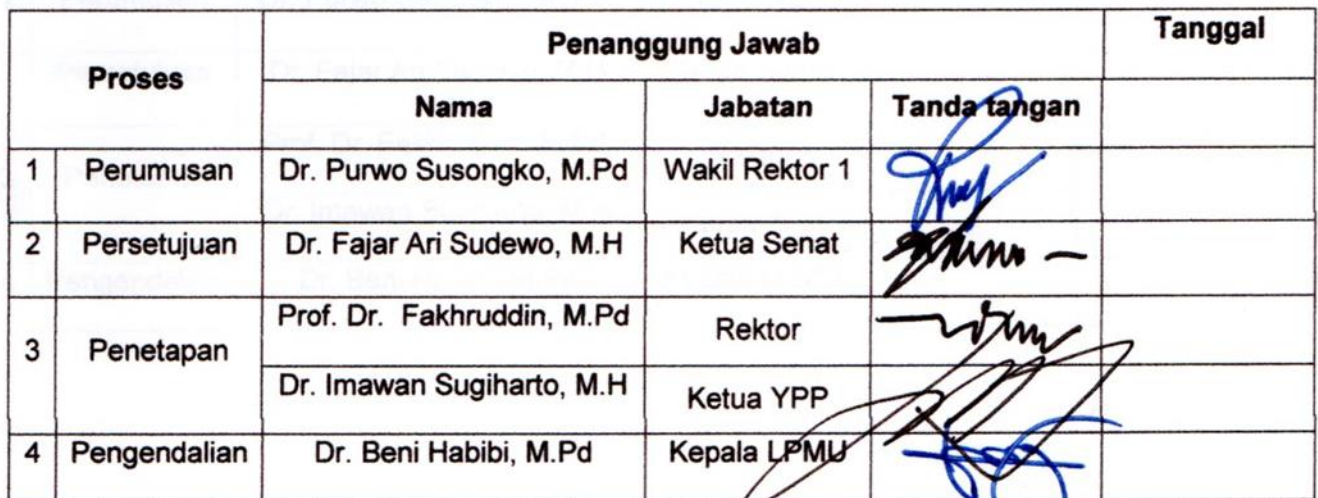 Proses Penanggung Jawab Tanggal
Nama Jabatan Tanda tangan
1 Perumusan Dr. Purwo Susongko, M.Pd Wakil Rektor 1
2 Persetujuan Dr. Fajar Ari Sudewo, M.H Ketua Senat
3 Penetapan Prof. Dr. Fakhruddin, M.Pd Rektor
Dr. Imawan Sugiharto, M.H Ketua YPP
4 Pengendalian Dr. Beni Habibi, M.Pd Kepala LPMU